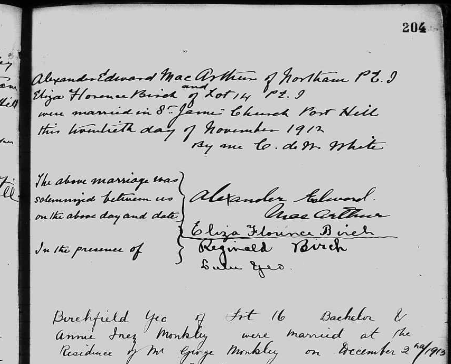 204
Alexander Edward MacArthur of Northam P.E.I
and
Eliza Florence Birch of Lot 14 P.E.I
were married in St James Church Port Hill
this twentieth day of November 1912
By me C. de W. White
The above marriage was
solemnized between us
on the above day and date
Alexander Edward
MacArthur
Eliza Florence Birch
In the presence of
Reginald Birch
Lulu Yeo
Birchfield Yeo of Lot 16 Bachelor &
Annie Inez Monkley were married at the
Residence of Mr George Monkley on December 2nd/1913